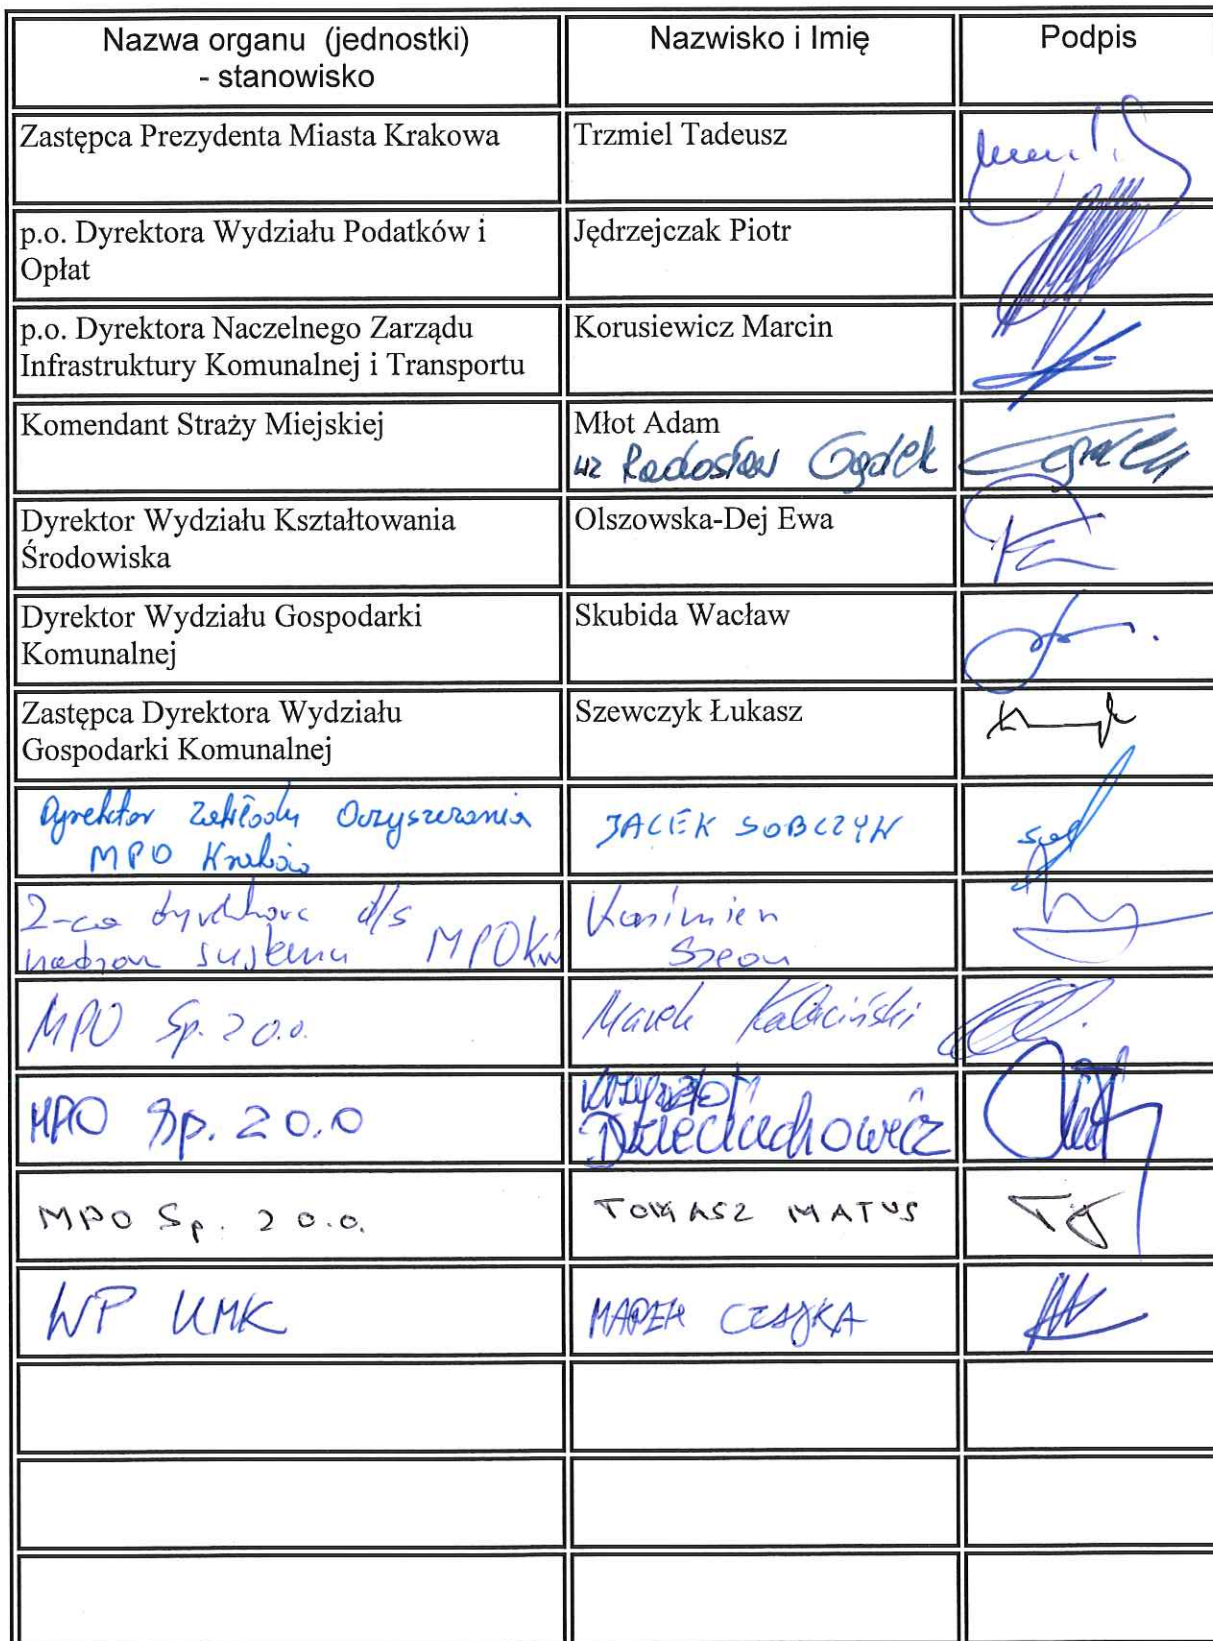 Nazwa organu (jednostki)
- stanowisko
Nazwisko i Imię
Podpis
Zastępca Prezydenta Miasta Krakowa
Trzmiel Tadeusz
p.o. Dyrektora Wydziału Podatków i
Opłat
Jędrzejczak Piotr
p.o. Dyrektora Naczelnego Zarządu
Infrastruktury Komunalnej i Transportu
Korusiewicz Marcin
Komendant Straży Miejskiej
Młot Adam
wz Radosław Gądek
Dyrektor Wydziału Kształtowania
Środowiska
Olszowska-Dej Ewa
Dyrektor Wydziału Gospodarki
Komunalnej
Skubida Wacław
Zastępca Dyrektora Wydziału
Gospodarki Komunalnej
Szewczyk Łukasz
Dyrektor Zakładu Oczyszczania
MPO Kraków
JACEK SOBCZYK
Z-ca dyrektora d/s
systemu MPO
Kazimierz
MPO Sp. z o.o.
Marek
MPO Sp. z o.o
Krzysztof
Dzieciuchowicz
MPO Sp. z o.o.
TOMASZ MATUS
WP UMK
MAREK CZAJKA